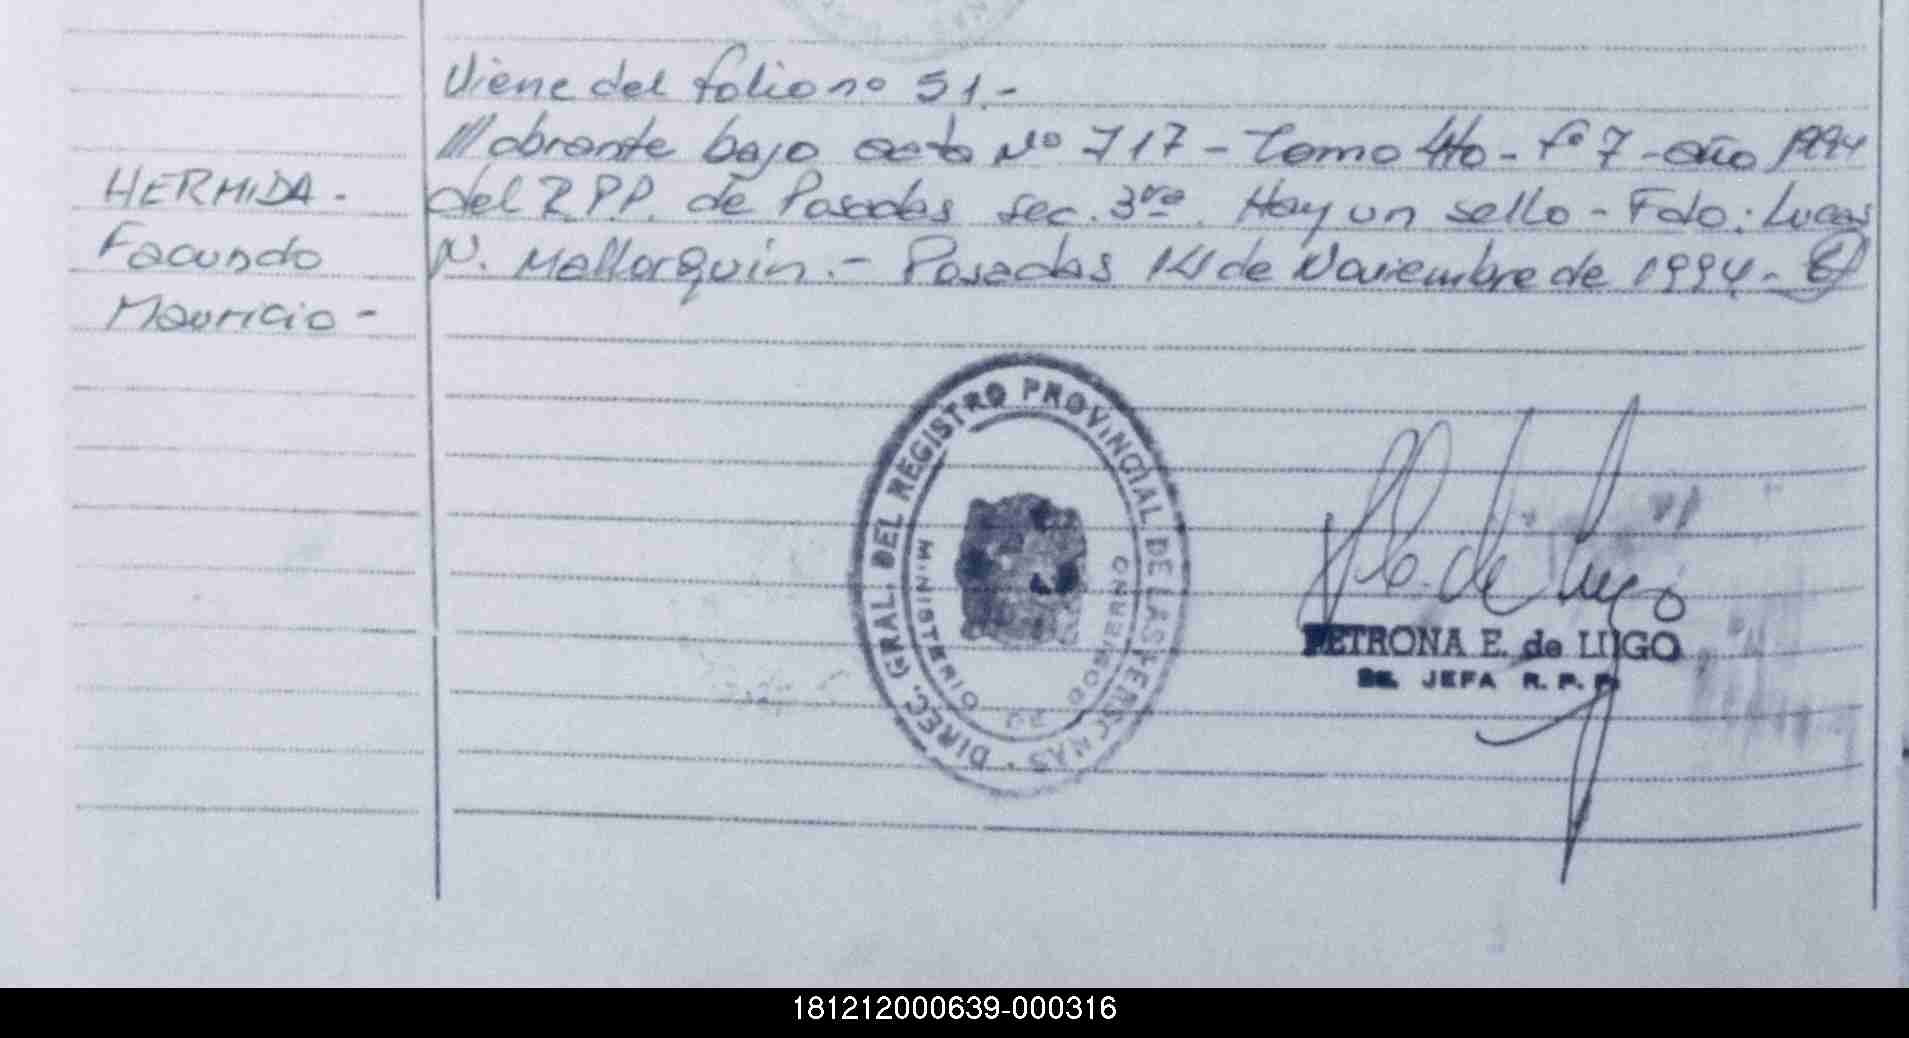 Viene del folio no 51.-
///obrante bajo acta No 717 - Tomo 4to - fo 7 - año 1994
HERMIDA - del R.P.P. de Posadas sec. 3ra. Hay un sello - Fdo: Lucas
Facundo N. Mallorquin.- Posadas 14 de Noviembre de 1994.-
Mauricio -
DIREC. GRAL. DEL REGISTRO PROVINCIAL DE LAS PERSONAS
MINISTERIO DE GOBIERNO
PETRONA E. de LUGO
JEFA R. P. P.
181212000639-000316